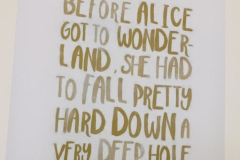 BEFORE ALICE
GOT TO WONDER-
LAND, SHE HAD
TO FALL PRETTY
HARD DOWN A
VERY DEEP HOLE